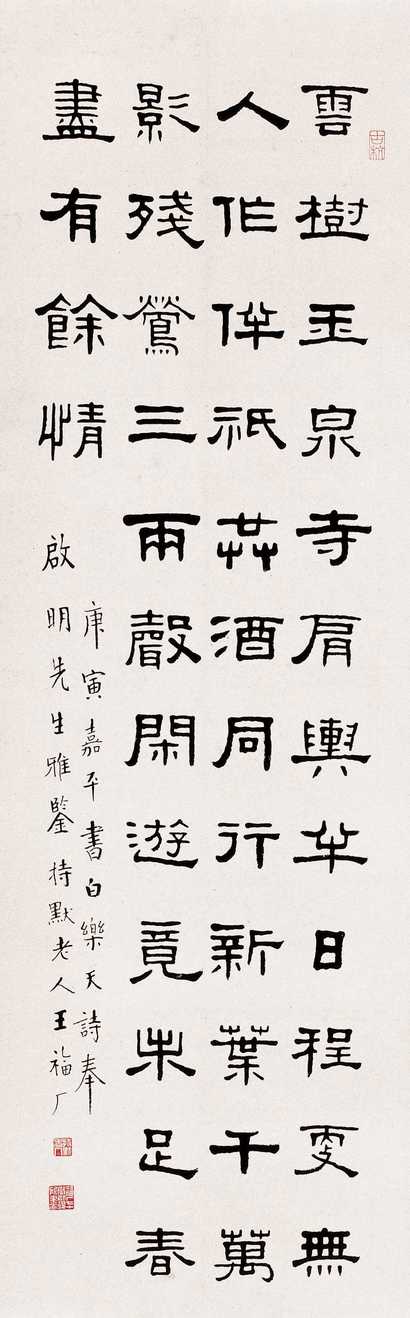 雲樹玉泉寺肩輿半日程更無
人作伴祇共酒同行新葉千萬
影殘鶯三兩聲閑遊竟未足春
盡有餘情
庚寅嘉平書白樂天詩奉
啟明先生雅鑒持默老人王福厂